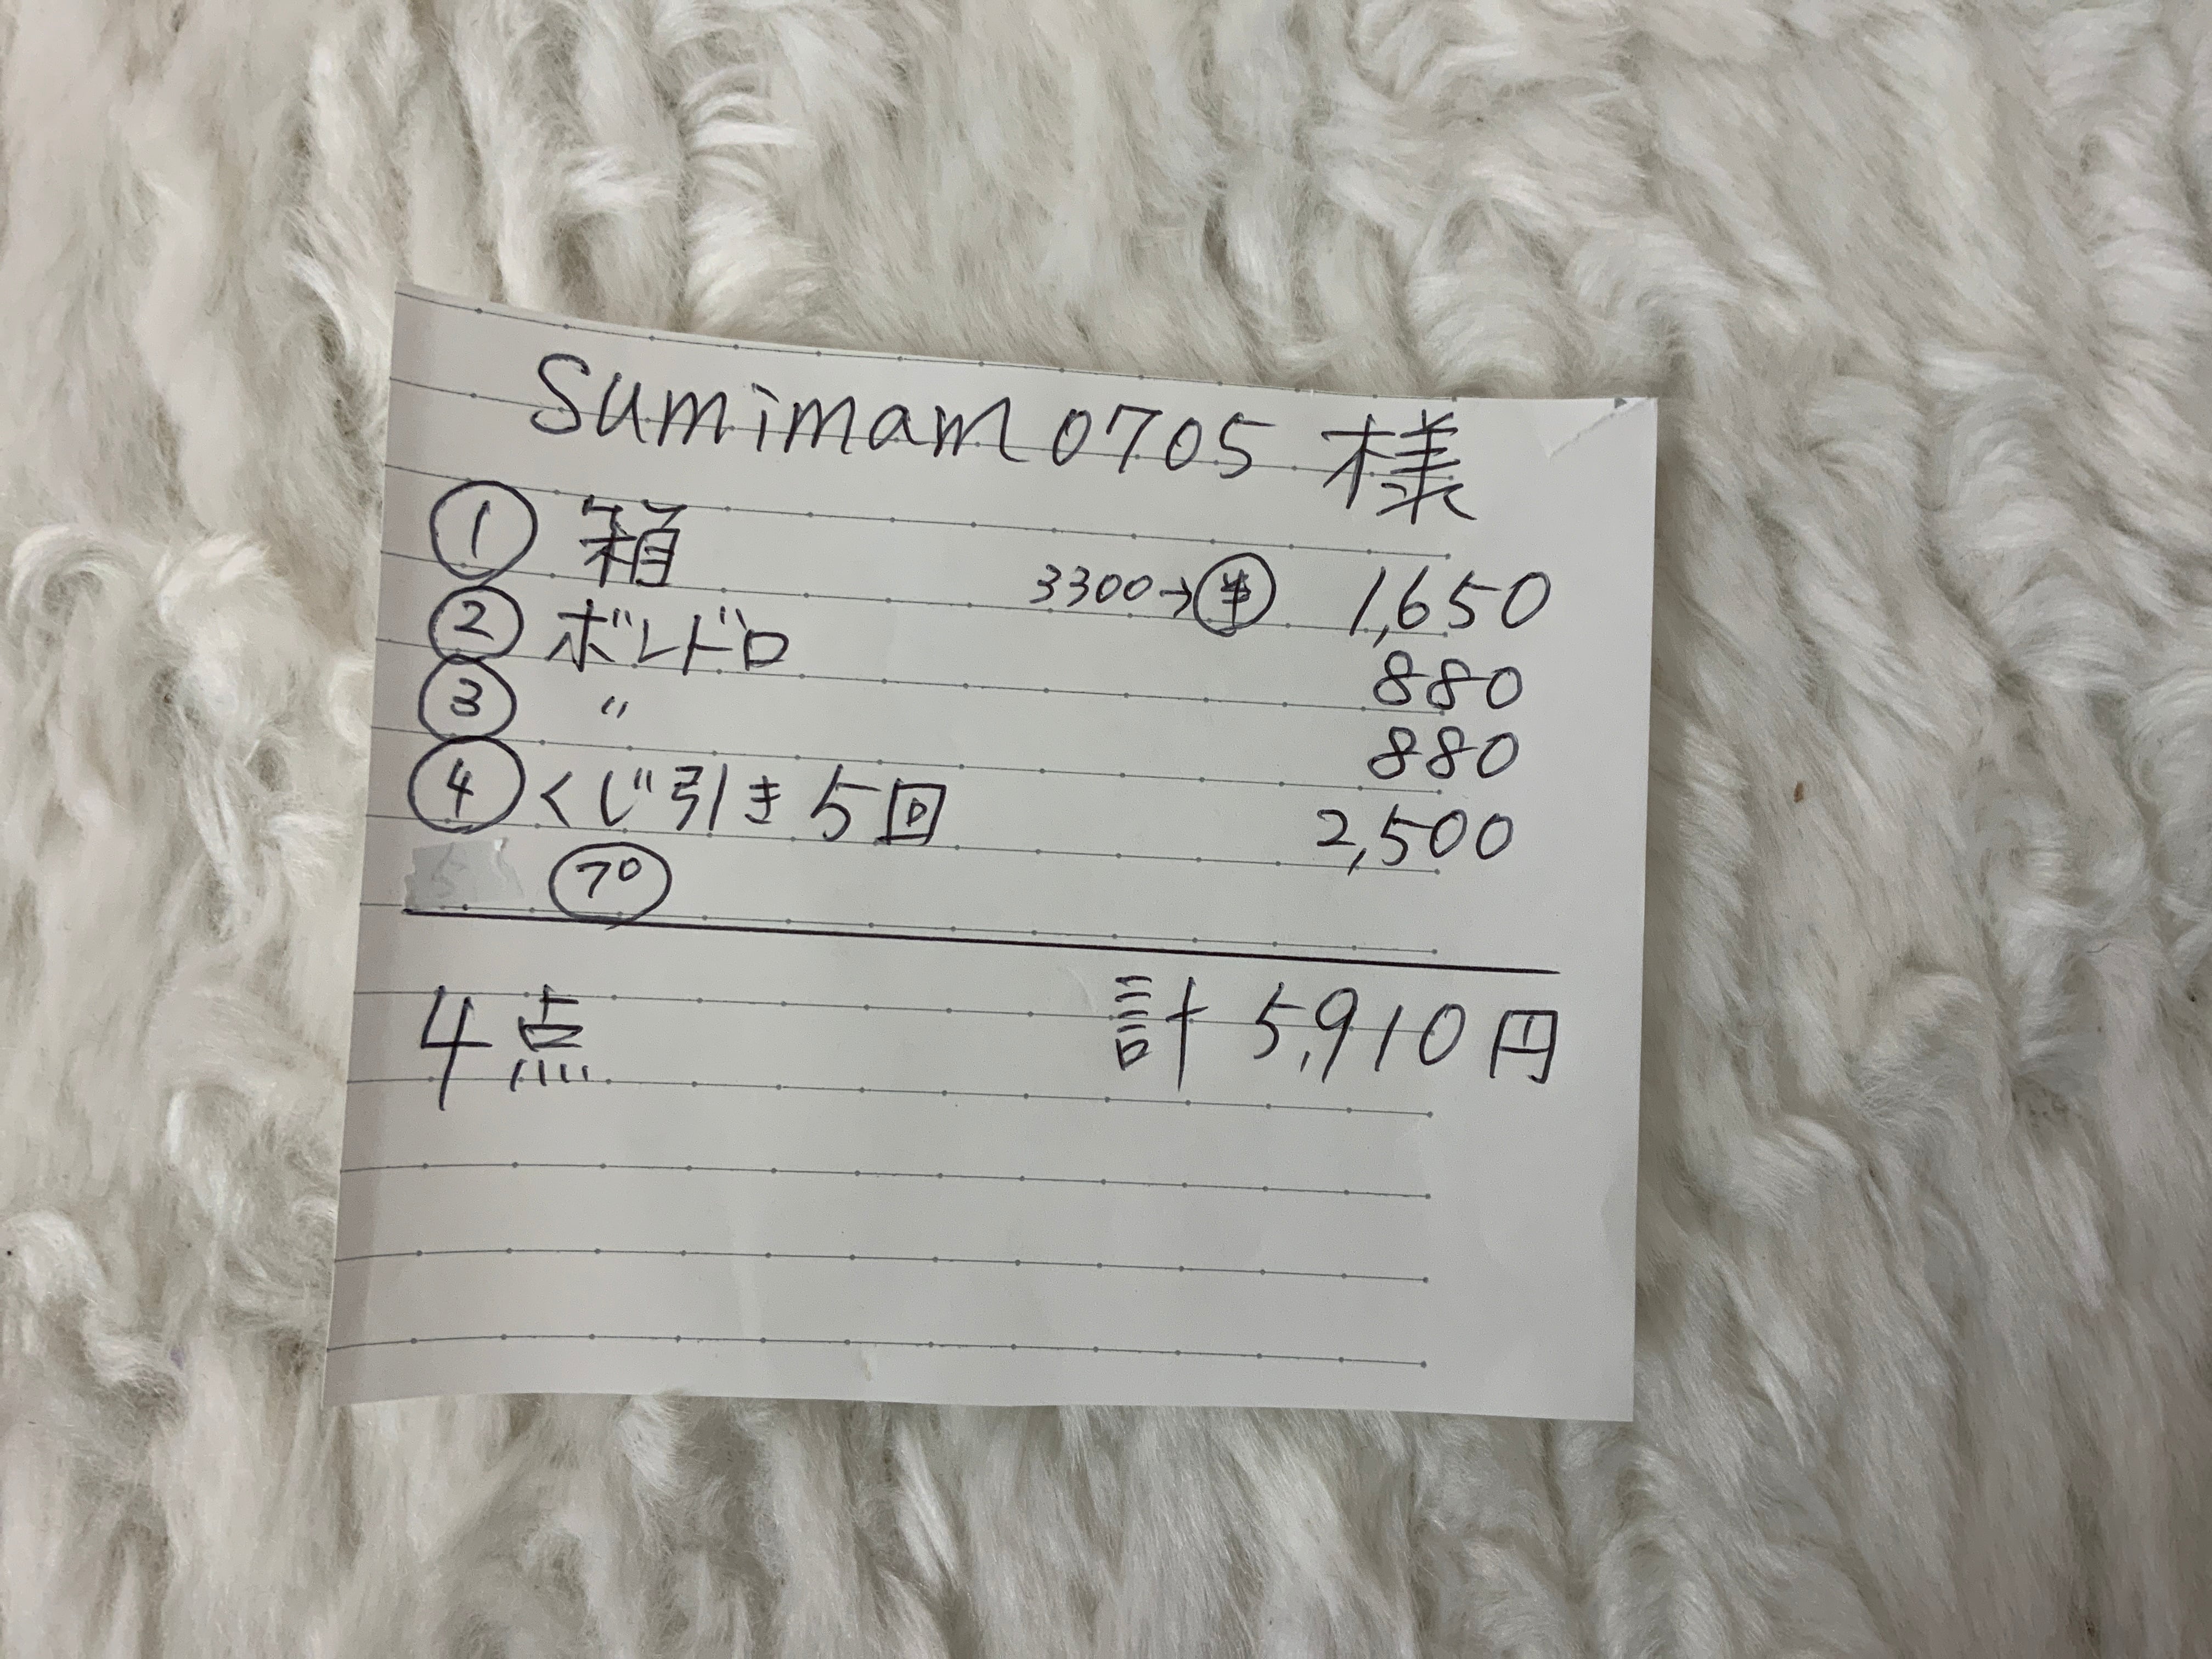 Sumimam0705 様
① 箱 3300→半 1,650
② ボンドロ 880
③ 〃 880
④ くじ引き5回 2,500
プ
4点 計 5,910円